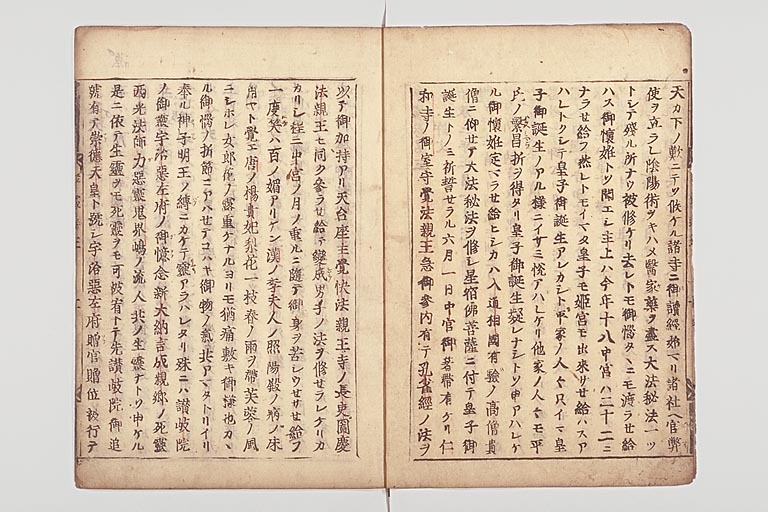 天カ下ノ歎ニテソ侍ケル諸寺ニ御讀經始マリ諸社ヘ官弊
使ヲ立ラレ陰陽術ヲキハメ醫家藥ヲ盡ス大法秘法一ツ
トシテ殘ル所ナウ被修ケリ去レトモ御惱タヽニモ渡ラセ給
ハス御懷姙トソ聞エシ主上ハ今年十八中宮ハ二十二ニ
ナラせ給フ然レトモイマタ皇子モ姫宮モ出來サせ給ハスア
ハレトクシテ皇子御誕生アレカシトテ平家ノ人々只イマ皇
子御誕生ノアル樣ニイサミ悦アハレケリ他家ノ人々モ平
氏ノ繁昌折ヲ得タリ皇子御誕生疑レナシトソ申アハレケ
ル御懷姙定マラせ給ヒシカハ入道相國有驗ノ高僧貴
僧ニ仰せテ大法秘法ヲ修シ星宿佛菩薩ニ付テ皇子御
誕生トノミ祈誓せラル六月一日中宮御著帶有ケリ仁
和寺ノ御室守覺法親王急御參内有テ孔雀經ノ法ヲ
以テ御加持アリ天台座主覺快法親王寺ノ長吏圓慶
法親王モ同ク參ラせ給テ變成男子ノ法ヲ修せラレケリカ
カリシ程ニ中宮ノ月ノ重ルニ隨テ御身ヲ苦シウせサせ給フ
一度笑ハ百ノ媚アリケン漢ノ李夫人ノ照陽殿ノ病ノ床
モカクヤト覺エ唐ノ楊貴妃梨花一枝春ノ雨ヲ帶芙蓉ノ風
ニシホレ女郎花ノ露重ケナルヨリモ猶痛敷キ御樣也カヽ
ル御惱ノ折節ニアハせテコハキ御物ノ氣共アマタトリイリ
奉ル神子明王ノ縛ニカケテ靈アラハレタリ殊ニハ讃岐院
ノ御靈宇治惡左府ノ御憶念新大納言成親卿ノ死靈
西光法師カ惡靈鬼界嶋ノ流人共ノ生靈ナトソ申ケル
是ニ依テ生靈ヲモ死靈ヲモ可被宥トテ先讃岐院御追
號有テ崇德天皇ト號シ宇治惡左府贈官贈位被行テ